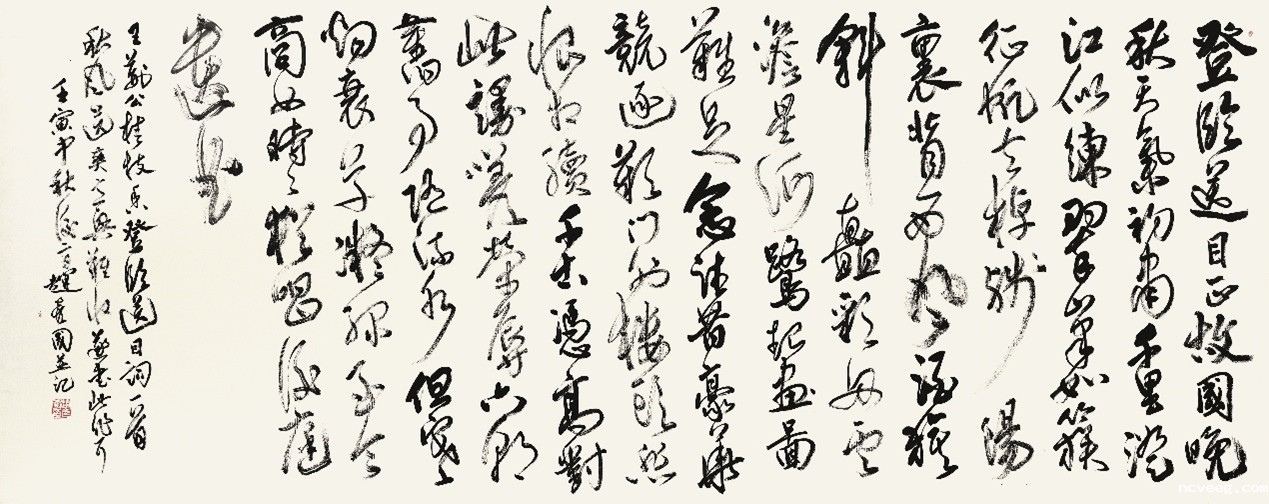 登臨送目正故國晚
秋天氣初肅千里澄
江似練翠峰如簇
征帆去棹殘陽
裏背西風酒旗
斜矗彩舟雲
澹星河鷺起畫圖
難足念往昔豪華
競逐歎門外樓頭悲
恨相續千古憑高對
此謾嗟榮辱六朝
舊事隨流水但寒
煙衰草凝綠至今
商女時々猶唱後庭
遺曲
王荊公桂枝香登臨送目詞一首
秋風送爽之興難收書此作
壬寅中秋後趙國並記
ncveeg.com